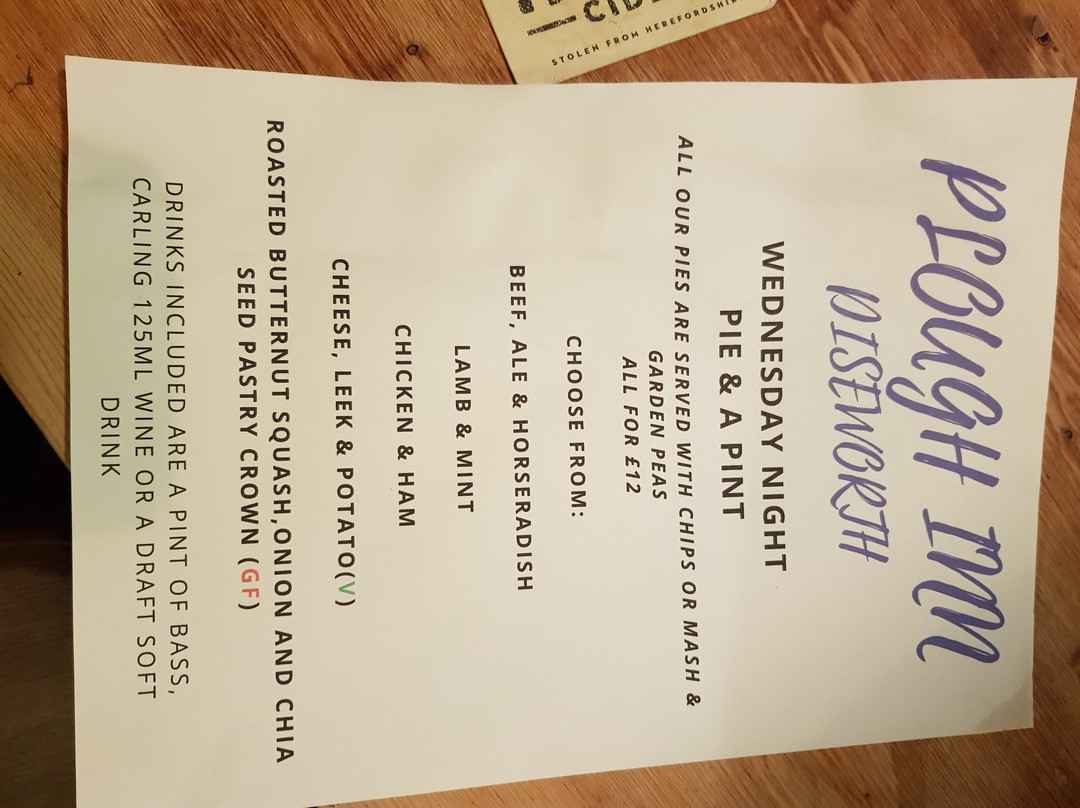 PLOUGH INN
DISEWORTH
WEDNESDAY NIGHT
PIE & A PINT
ALL OUR PIES ARE SERVED WITH CHIPS OR MASH &
GARDEN PEAS
ALL FOR £12
CHOOSE FROM:
BEEF, ALE & HORSERADISH
LAMB & MINT
CHICKEN & HAM
CHEESE, LEEK & POTATO(V)
ROASTED BUTTERNUT SQUASH,ONION AND CHIA
SEED PASTRY CROWN (GF)
DRINKS INCLUDED ARE A PINT OF BASS,
CARLING 125ML WINE OR A DRAFT SOFT
DRINK
STOLEN FROM HEREFORDSHIR